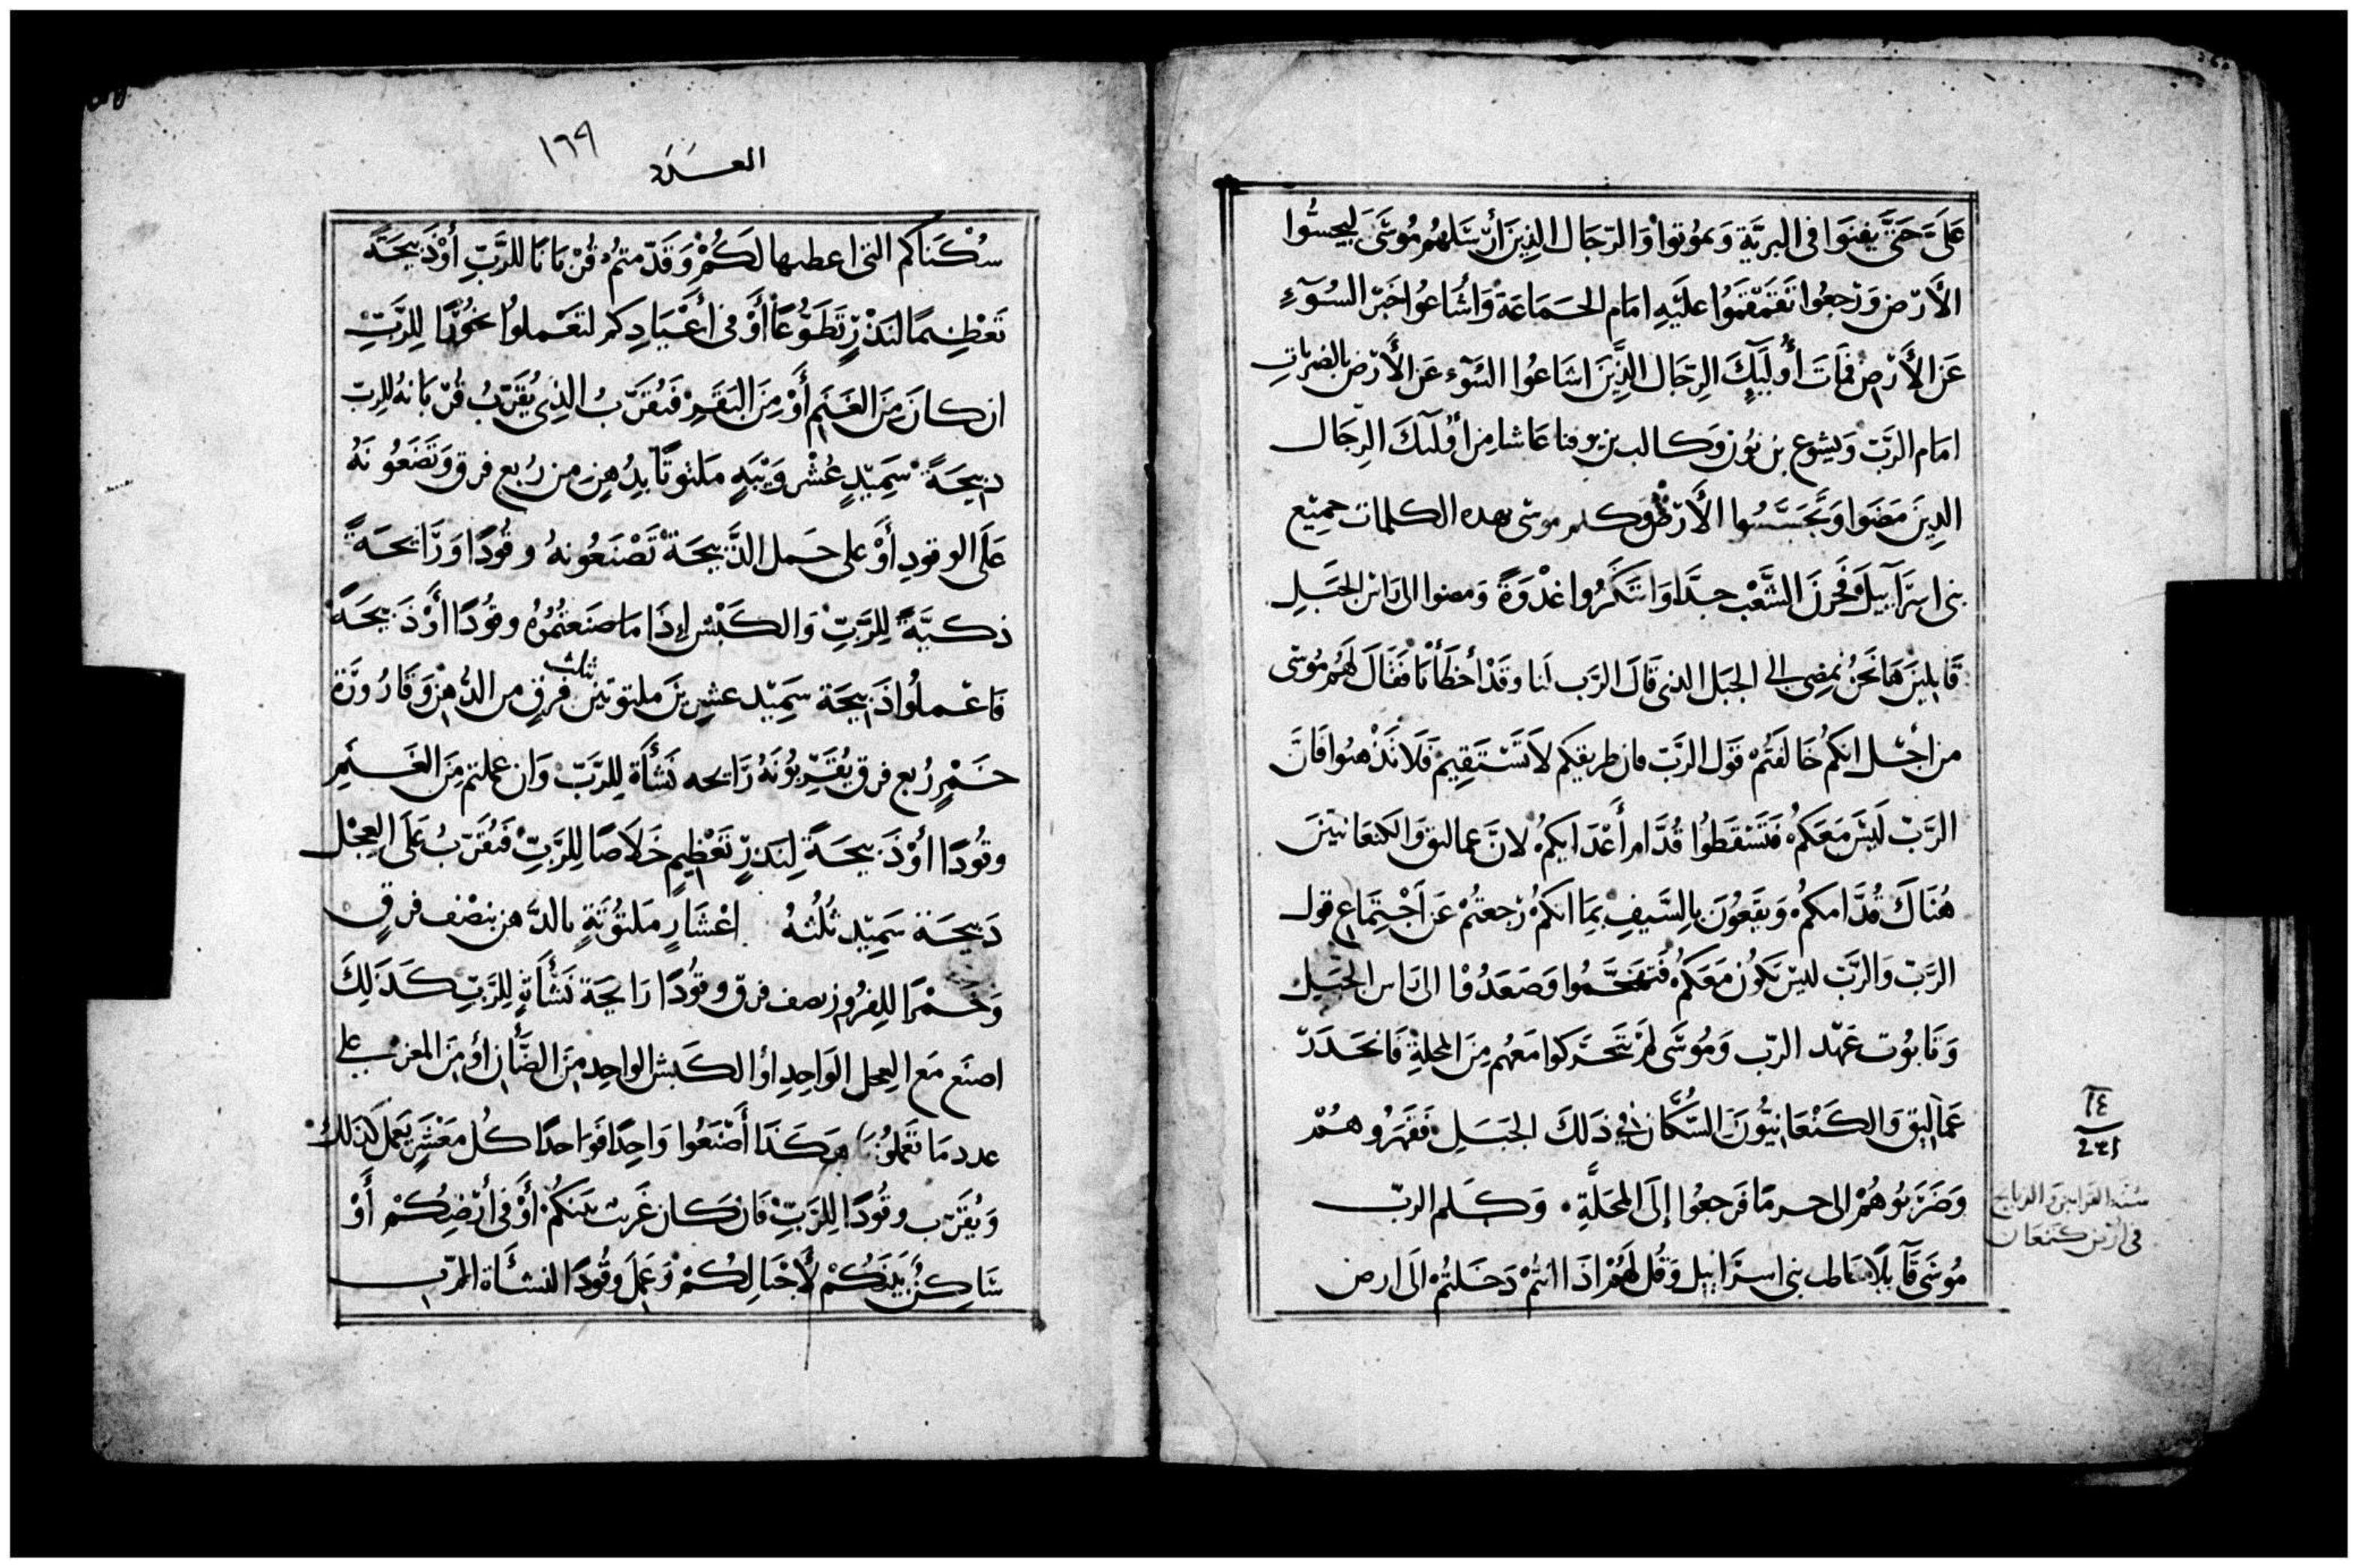 عَلَيَّ حَتَّى يفنَوا فى البريَّة وَيموُتوا وَالرّجَال الذِينَ أرْسَلهُم مُوسَى ليجسُّوا
الأَرْض وَرجعُوا تَقَمْقَمُوا علَيْهِ امَام الجَمَاعَة وَاشَاعُوا خبَر السُوٓءِ
عَن الأَرْض فمَات أُولَيِكَ الرِجَال الذِينَ اشَاعُوا السُوٓء عَن الأَرْض بالضربَاتِ
امَام الرَبّ وَيشوع بن نوُن وَكالب بن يوفنا عَاشا مِن أولَيكَ الرِجَال
الذِينَ مَضَوا وَتجَسَّسُوا الأَرْض وكلم موسَى بهده الكلمات جميْع
بنى اسرَآييلَ فحَزنَ الشَّعْب جدَّا وَابتَكَرُوا غدْوَةً وَمضوا الى رَاس الجَبَلِ
قَايلِينَ هَا نحَنُ نمضِى الي الجبَل الذى قَالَ الرَب لَنا وقَدْ أخطَأْنَا فَقَالَ لهَمُ مُوسَى
من أجْل انكمُ خَالفتُمْ قَول الرَبّ فان طريقكم لاَ تَسْتَقِيمْ فَلاَ تَذْهبُوا فَانَّ
الرَبّ ليَسَ مَعَكمُ فَتَسْقطَوُا قُدَّام أَعْدَايكمُ لانَّ عمالق وَالكنعَانيّينَ
هُنَاكَ قُدَّامكمُ وَيقَعُونَ بِالسَّيفِ بمَا انكمُ رجعتُمْ عَن أجْتِمَاع قول
الرَبّ وَالرَبّ ليْسَ يَكوُن مَعَكمُ فَتَقَحَّموا وَصَعَدُوْا الى رَاس الجَبَل
وَتَابوُت عَهْد الربّ وَمُوسَى لمَ يتَحَرَّكوا مَعهُم مِنَ المحلةِ فَانحَدَرَ
عَمَاليق وَالكَنْعَانيُّونَ السُّكَّان فى ذَلكَ الجَبَلِ فَقهَرُوهُمْ
وَضَرَبوُهُمْ الى حرمَا فَرجعُوا إلَى المحَلَّةِ . وَكَلم الربّ
مُوسَى قَآيلاً خاطب بنى اسرَاييل وَقُل لهَمُ اذَا انتُمْ دَخَلتُمْ الَى ارض
١٤
٢٤١
سُنة القرابين والدبايح
فى أرْض كنعَان
العَدَد ١٦٩
سُكْنَاكم التى اعطيها لَكُمْ وَقَدّمتمُ قُرْبَانًا للرَّبِّ أوْ ذَبيحَةً
تَعْظِيمًا لنَذْرٍ تَطَوُّعًا أَوْ فى أَعْيَادِكم لتَعْملوُا بخُوْرًا لِلرَّبِّ
ان كانَ مِنَ الغَنَمِ أَوْ مِنَ البَقَرِ فَيُقَرّبُ الذِى يُقَرّبُ قُرْبَانهُ للرِبّ
ذبيحَةً سَمِيْدٍ عُشْر وَيْبَةٍ مَلتوتًا بدُهِنٍ من رُبع فرق وَتَضَعُونَهُ
عَلَى الوقودِ أَوْ على حَمل الذَّبيحَة تَصْنَعُونهُ وقُودًا وَرَايحَةً
ذكيَّةً لِلرَّبِّ وَالكَبْش إذَا مَا صَنعتُمُوُهُ وقُودًا أَوْ ذَبيحَةً
فَاعْملُوا ذَبيحَة سَمِيْد عشرين ملتوتين ثلث فرقٍ من الدُّهنْ وَقَارُورَة
خَمْرٍ رُبع فرق يُقَرِّبوُنَهُ رَايحه نَشأَة لِلرَّبّ وَان عملتم مِنَ الغَنَمِ
وقُودًا أوْ ذَبيحَةً لِنَذرٍ تَعْظِيمٍ خَلاَصًا لِلرَّبِّ فَيُقَرّبُ عَلَى العِجْل
ذَبيحَة سَمِيْد ثُلُثهُ اعْشَارٍ مَلتوُتَةٍ بالدّهن بنصْف فرقٍ
وَخمْرًا للِفرُوز نصف فرق وقوُدًا رَايحَة نَشْأَةٍ لِلرَبِّ كَذَلِكَ
اصنَع مَع العِجل الوَاحِدِ أو الكَبش الواحِد مِنَ الضَّأن أو مِنَ المعز على
عدد مَا تَعَملوُن هَكَذَا أَصْنَعُوا وَاحِدًا فَوَاحدًا كُل مَعْشَرٍ يَعمَل كذلك
وَيُقرّب وقُودًا لِلرَبِّ فَان كان غَريب بَينكمُ أوْ فى أرْضِكُمْ أَوْ
سَاكِنٌ بَيْنَكُمْ لأَجْيَالِكُمْ وَعَمِلَ وقُودًا لنشأَة الرّب